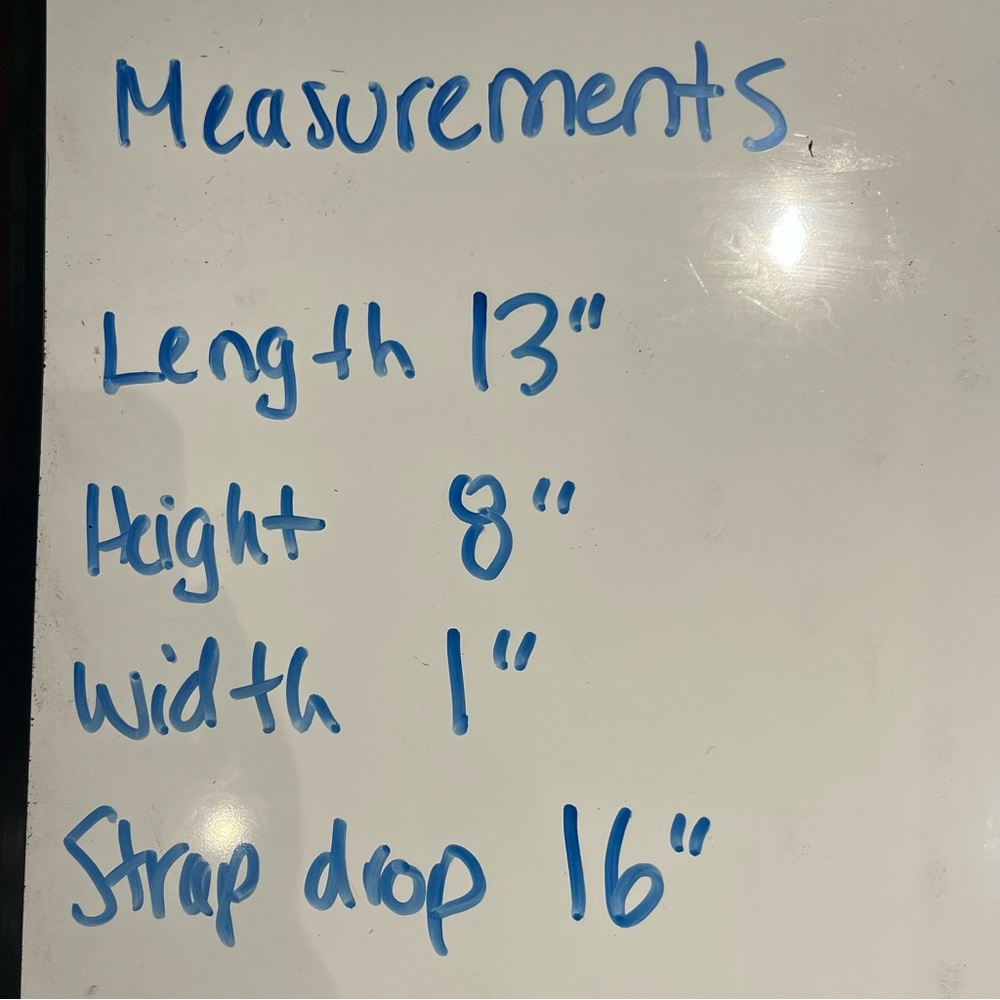 Measurements
Length 13"
Height 8"
Width 1"
Strap drop 16"